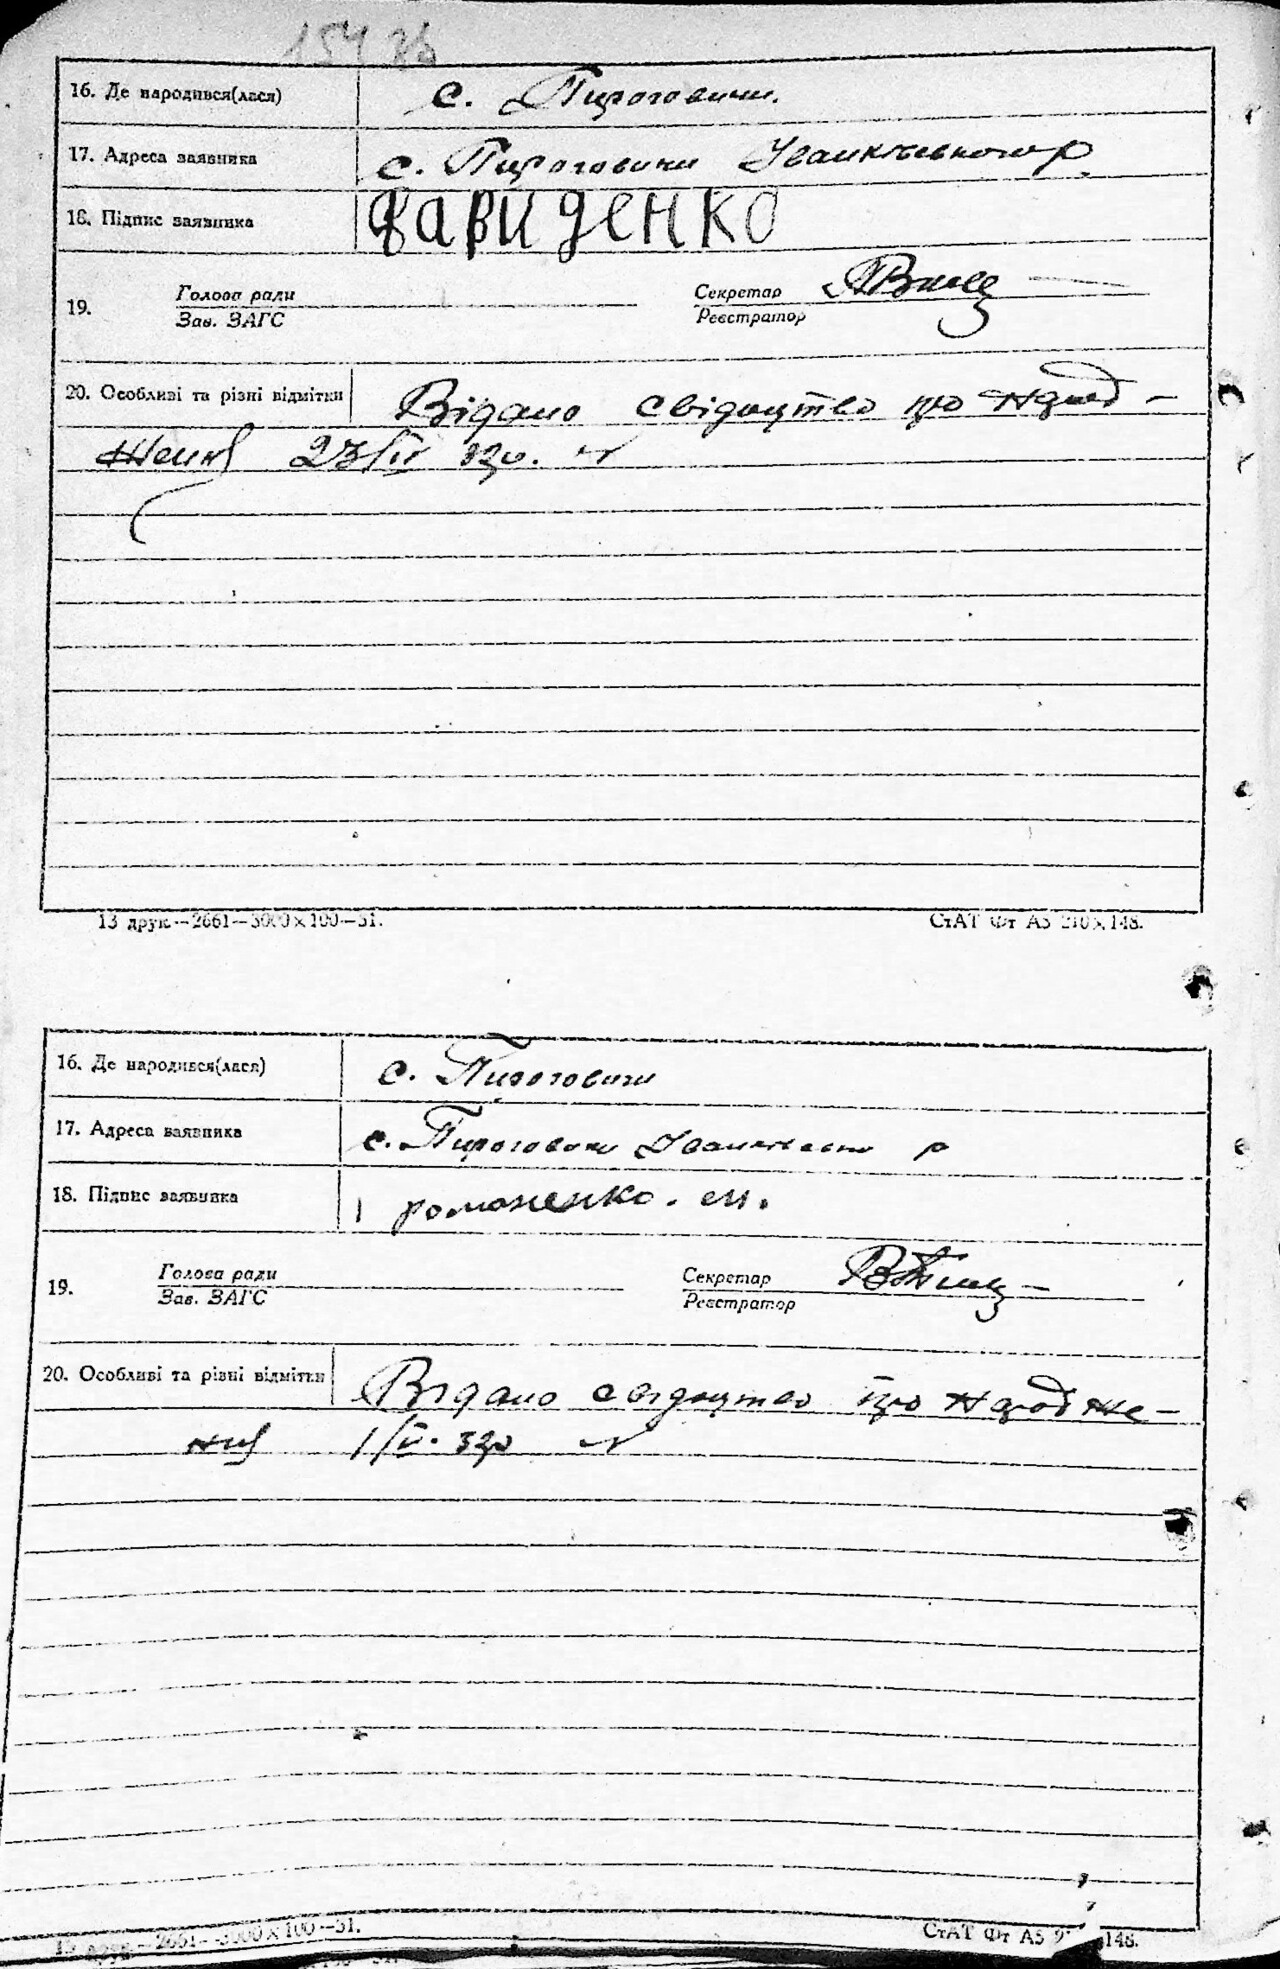 154 зв
16. Де народився(лася) с. Пироговичи.
17. Адреса заявника с. Пироговичи Іванківського р
18. Підпис заявника Давиденко
19. Голова ради Секретар
Зав. ЗАГС Реєстратор
20. Особливі та різні відмітки Відано свідоцтво про народ-
ження 23/IV 32р.
13 друк.—2661—3000×100—31. СтАТ Фт А5 210×148.
16. Де народився(лася) с. Пироговичи
17. Адреса заявника с. Пироговичи р
18. Підпис заявника романенко.
19. Голова ради Секретар
Зав. ЗАГС Реєстратор
20. Особливі та різні відмітки Відано свідоцтво про народже-
ния 32р
13 друк.—2661—3000×100—31. СтАТ Фт А5 148.